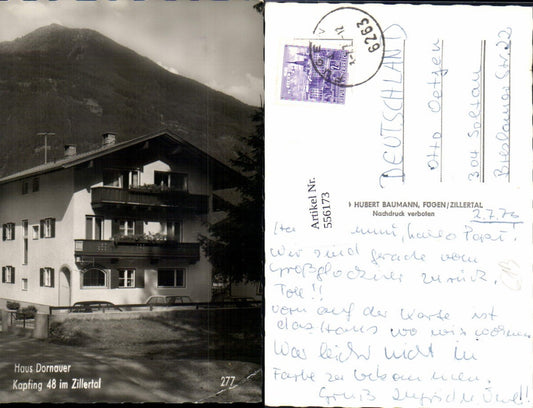 Haus Dornauer
Kapfing 48 im Zillertal
277
6263
DEUTSCHLAND
Otto Oetjen
304 Soltau
Breslauer Str. 22
Artikel Nr.
556173
HUBERT BAUMANN, FÜGEN/ZILLERTAL
Nachdruck verboten
2.7.76
Papi!
Wir sind gerade vom
Großglockner zurück.
Toll!!
Vorn auf der Karte ist
das Haus wo wir wohnen
War leider nicht in
Farbe zu bekommen.
Gruß